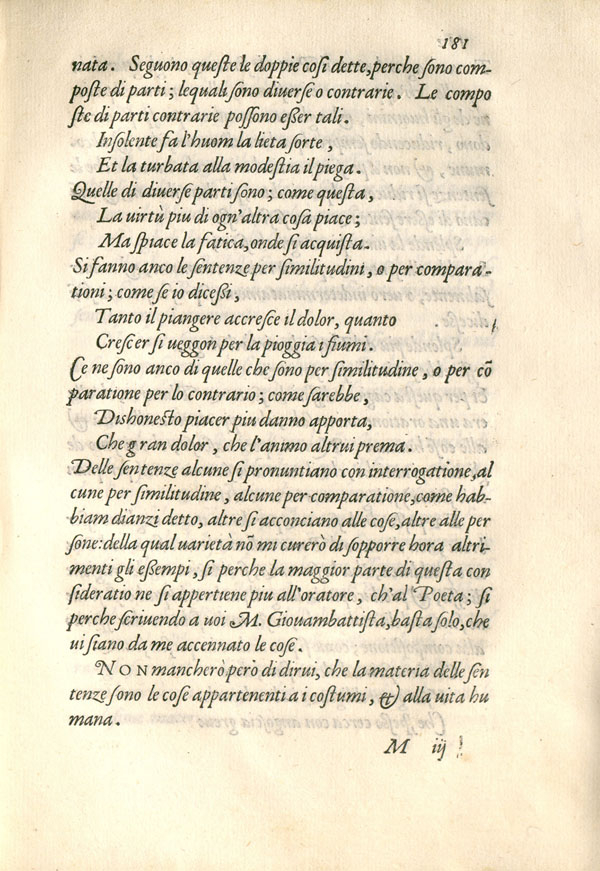 181
nata. Seguono queste le doppie cosi dette, perche sono com-
poste di parti; lequali sono diverse o contrarie. Le compo
ste di parti contrarie possono eßer tali.
Insolente fa l'huom la lieta sorte,
Et la turbata alla modestia il piega.
Quelle di diverse parti sono; come questa,
La virtù piu di ogn'altra cosa piace;
Ma spiace la fatica, onde si acquista.
Si fanno anco le sentenze per similitudini, o per compara-
tioni; come se io diceßi,
Tanto il piangere accresce il dolor, quanto
Crescer si veggon per la pioggia i fiumi.
Ce ne sono anco di quelle che sono per similitudine, o per cõ
paratione per lo contrario; come sarebbe,
Dishonesto piacer piu danno apporta,
Che gran dolor, che l'animo altrui prema.
Delle sentenze alcune si pronuntiano con interrogatione, al
cune per similitudine, alcune per comparatione, come hab-
biam dianzi detto, altre si acconciano alle cose, altre alle per
sone: della qual varietà nõ mi curerò di sopporre hora altri-
menti gli eßempi, si perche la maggior parte di questa con
sideratio ne si appertiene piu all'oratore, ch'al Poeta; si
perche scrivendo a voi M. Giovambattista, basta solo, che
vi siano da me accennato le cose.
NON mancherò però di dirvi, che la materia delle sen
tenze sono le cose appartenenti a i costumi, & alla vita hu
mana.
M iij